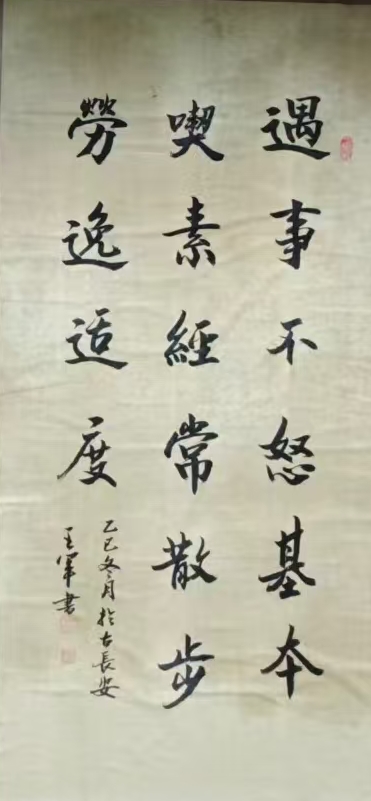 遇事不怒基本
喫素經常散步
勞逸适度
乙巳冬月於古長安
王軍書